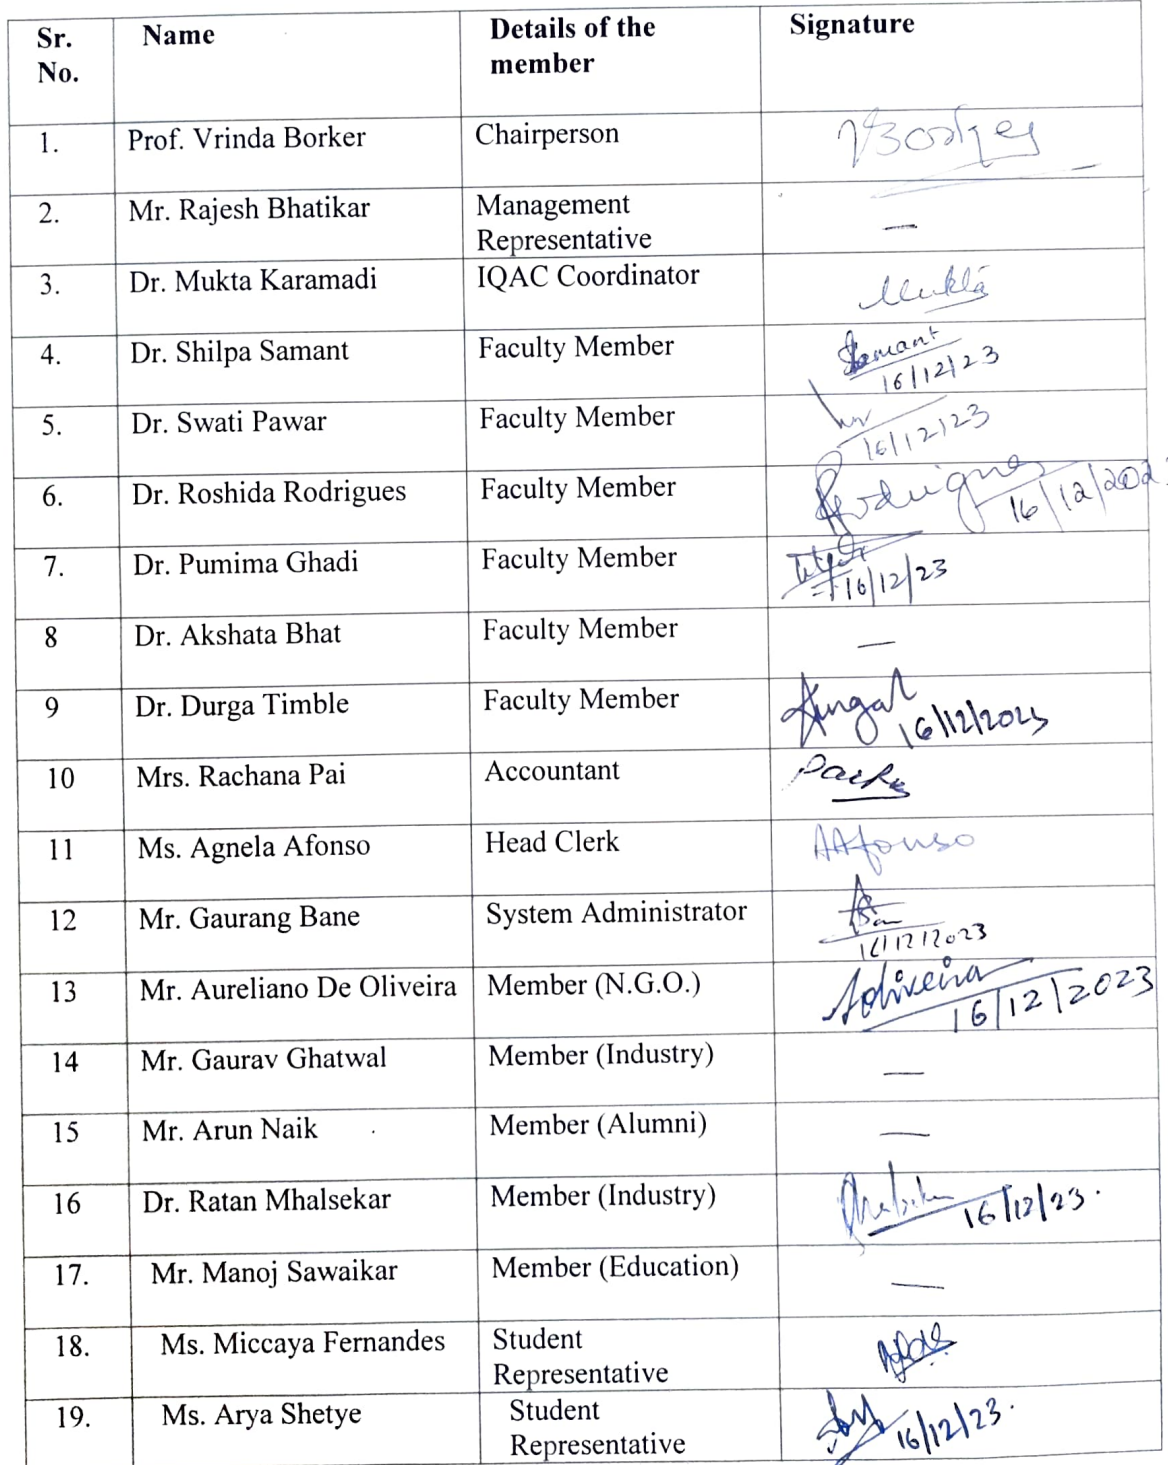 Sr. No. Name Details of the member Signature
1. Prof. Vrinda Borker Chairperson VBorker
2. Mr. Rajesh Bhatikar Management Representative —
3. Dr. Mukta Karamadi IQAC Coordinator Mukta
4. Dr. Shilpa Samant Faculty Member Samant 16/12/23
5. Dr. Swati Pawar Faculty Member 16/12/23
6. Dr. Roshida Rodrigues Faculty Member Rodrigues 16/12/2023
7. Dr. Pumima Ghadi Faculty Member 16/12/23
8 Dr. Akshata Bhat Faculty Member —
9 Dr. Durga Timble Faculty Member 16/12/2023
10 Mrs. Rachana Pai Accountant
11 Ms. Agnela Afonso Head Clerk AAfonso
12 Mr. Gaurang Bane System Administrator 16/12/2023
13 Mr. Aureliano De Oliveira Member (N.G.O.) Aoliveira 16/12/2023
14 Mr. Gaurav Ghatwal Member (Industry) —
15 Mr. Arun Naik Member (Alumni) —
16 Dr. Ratan Mhalsekar Member (Industry) 16/12/23.
17. Mr. Manoj Sawaikar Member (Education) —
18. Ms. Miccaya Fernandes Student Representative
19. Ms. Arya Shetye Student Representative 16/12/23.